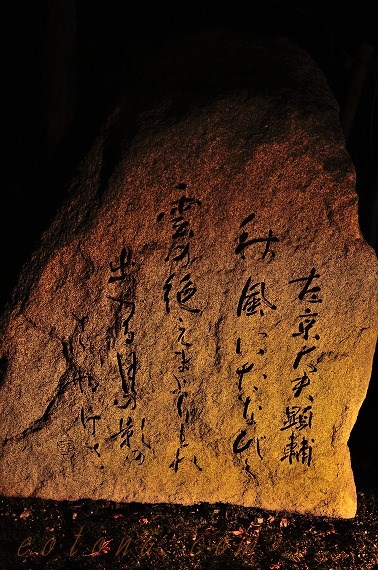 左京大夫顕輔
秋風にたなびく
雲の絶えまより
もれ
出づる月の影の
さやけさ
cotono.com